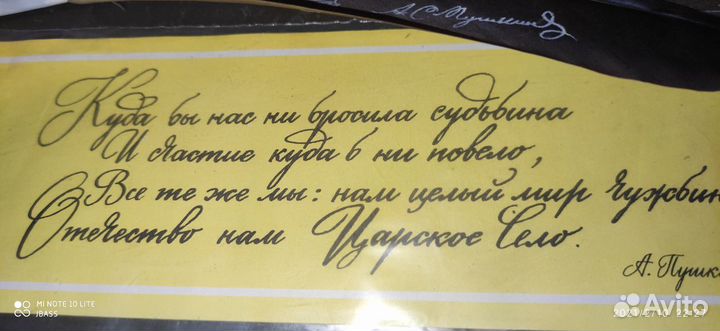 А.С.Пушкин
Куда бы нас ни бросила судьбина
И счастие куда б ни повело,
Все те же мы: нам целый мир чужбин
Отечество нам Царское Село.
А. Пушк
MI NOTE 10 LITE
JBASS
Avito